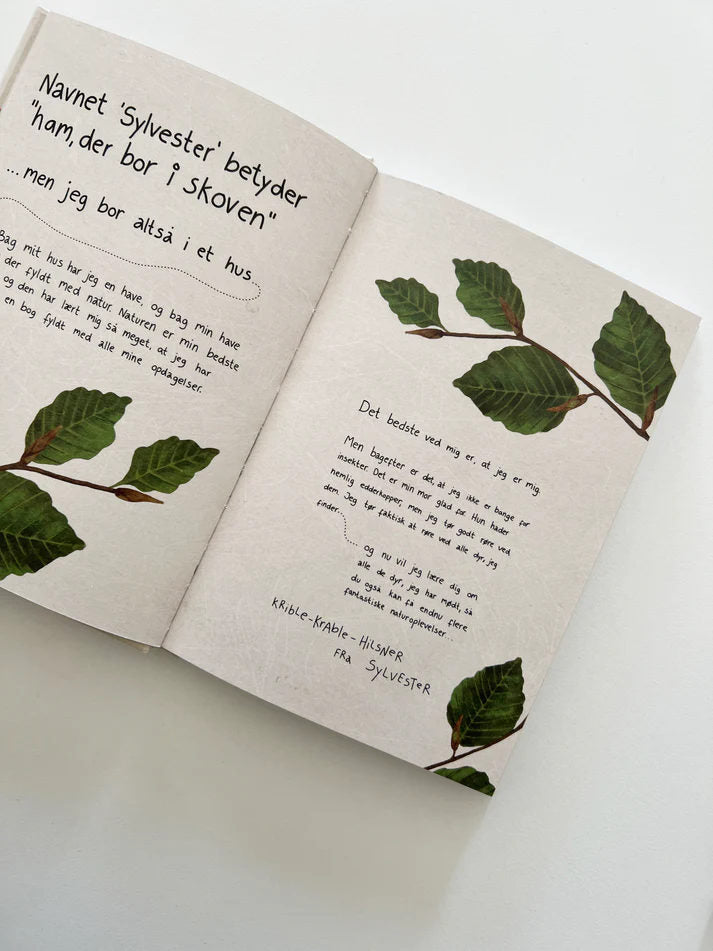 Navnet 'Sylvester' betyder
"ham, der bor i skoven"
...men jeg bor altså i et hus.
Bag mit hus har jeg en have, og bag min have
der fyldt med natur. Naturen er min bedste
og den har lært mig så meget, at jeg har
en bog fyldt med alle mine opdagelser.
Det bedste ved mig er, at jeg er mig.
Men bagefter er det, at jeg ikke er bange for
insekter. Det er min mor glad for. Hun hader
nemlig edderkopper, men jeg tør godt røre ved
dem. Jeg tør faktisk at røre ved alle dyr, jeg
finder...
... og nu vil jeg lære dig om
alle de dyr, jeg har mødt, så
du også kan få endnu flere
fantastiske naturoplevelser...
KRibLe-KRAbLe-HiLSNeR
FRa SYLVESTeR